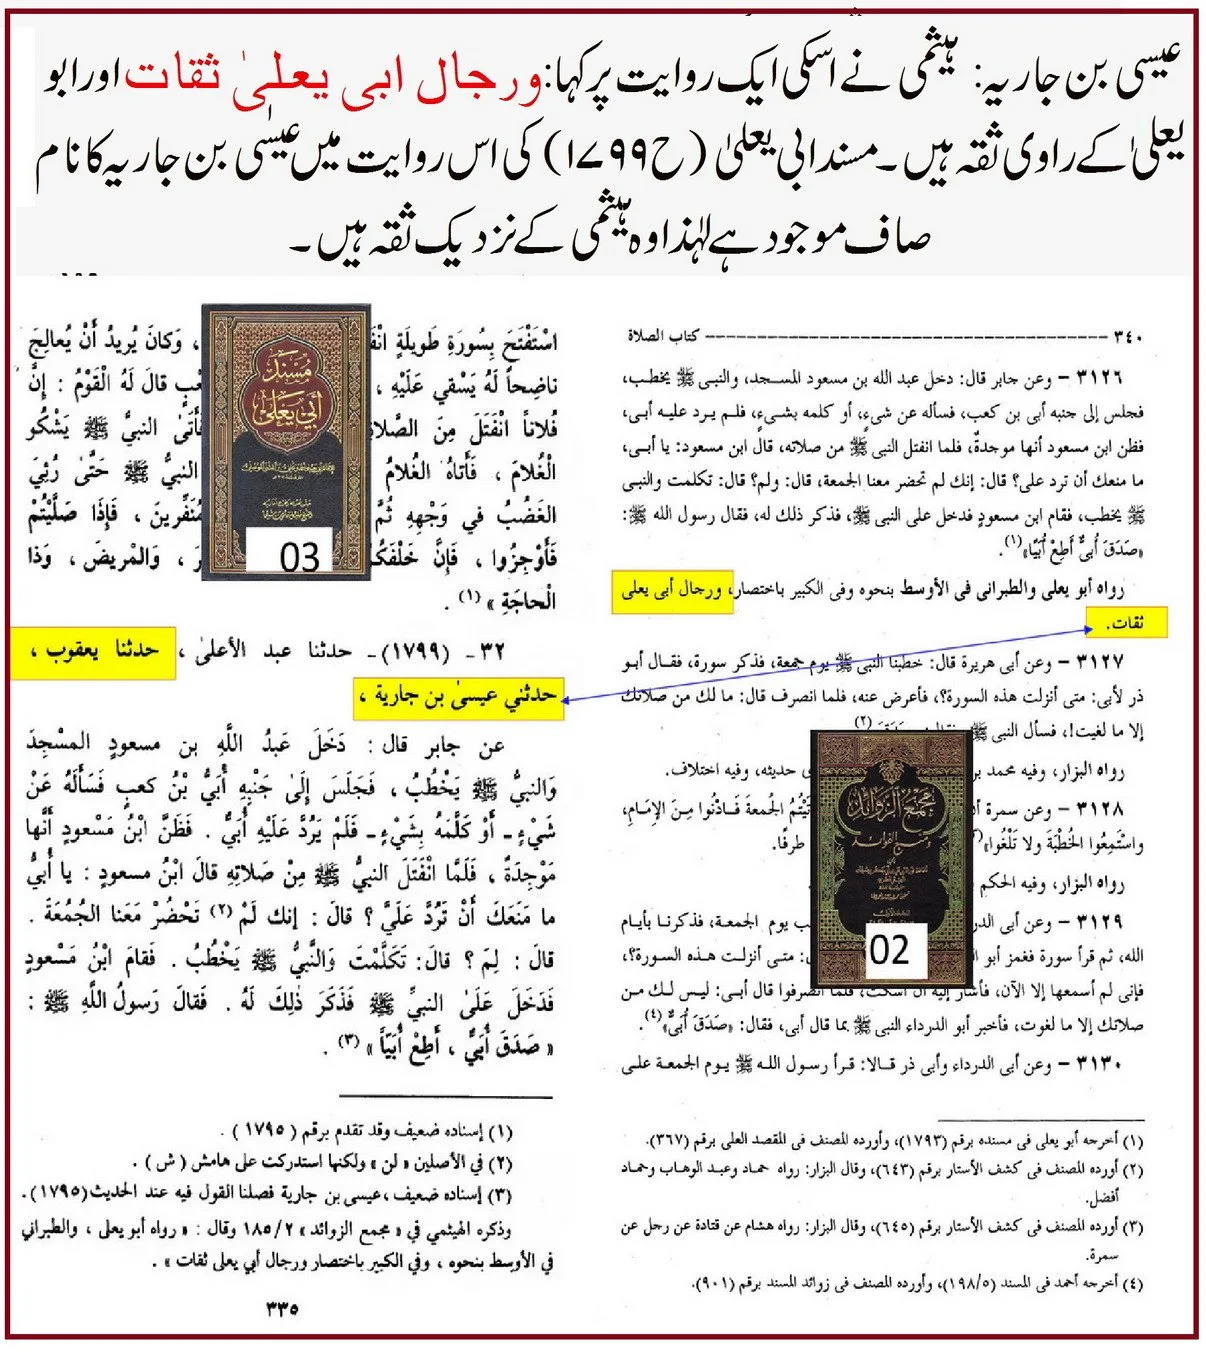 عیسی بن جاریہ: ہیثمی نے اسکی ایک روایت پر کہا: ورجال ابی یعلیٰ ثقات اور ابو
یعلیٰ کے راوی ثقہ ہیں۔ مسند ابی یعلیٰ (ح۱۷۹۹) کی اس روایت میں عیسٰی بن جاریہ کا نام
صاف موجود ہے لہٰذا وہ ہیثمی کے نزدیک ثقہ ہیں۔
٣٤٠ كتاب الصلاة
٣١٢٦ – وعن جابر قال: دخل عبد الله بن مسعود المسجد، والنبى ﷺ يخطب،
فجلس إلى جنبه أبى بن كعب، فسأله عن شىءٍ، أو كلمه بشىءٍ، فلم يرد عليه أبى،
فظن ابن مسعود أنها موجدةٌ، فلما انفتل النبى ﷺ من صلاته، قال ابن مسعود: يا أبى،
ما منعك أن ترد على؟ قال: إنك لم تحضر معنا الجمعة، قال: ولم؟ قال: تكلمت والنبى
ﷺ يخطب، فقام ابن مسعودٍ فدخل على النبى ﷺ، فذكر ذلك له، فقال رسول الله ﷺ:
«صَدَقَ أُبىٌّ أَطِعْ أُبَيًا»(١).
رواه أبو يعلى والطبرانى فى الأوسط بنحوه وفى الكبير باختصار، ورجال أبى يعلى
ثقات.
٣١٢٧ – وعن أبى هريرة قال: خطبنا النبى ﷺ يوم جمعة، فذكر سورة، فقال أبو
ذر لأبى: متى أنزلت هذه السورة؟، فأعرض عنه، فلما انصرف قال: ما لك من صلاتك
إلا ما لغيت!، فسأل النبى ﷺ
رواه البزار، وفيه محمد حديثه، وفيه اختلاف.
٣١٢٨ – وعن سمرة الجُمعة فَادْنُوا مِنَ الإِمَامِ،
واسْتَمِعُوا الخُطْبَةَ ولا تَلْغُوا» طرفًا.
رواه البزار، وفيه الحكم
٣١٢٩ – وعن أبى الدر يوم الجمعة، فذكرنا بأيام
الله، ثم قرأ سورة فغمز أبو : متى أنزلت هذه السورة؟،
فإنى لم أسمعها إلا الآن، فأشار إليه أن اسكت، فلما انصرفوا قال أبى: ليس لك من
صلاتك إلا ما لغوت، فأخبر أبو الدرداء النبى ﷺ بما قال أبى، فقال: «صَدَقَ أُبىٌّ»(٤).
٣١٣٠ – وعن أبى الدرداء وأبى ذر قالا: قرأ رسول الله ﷺ يوم الجمعة على
(١) أخرجه أبو يعلى فى مسنده برقم (١٧٩٣)، وأورده المصنف فى المقصد العلى برقم (٣٦٧).
(٢) أورده المصنف فى كشف الأستار برقم (٦٤٣)، وقال البزار: رواه حماد وعبد الوهاب وحماد
أفضل.
(٣) أورده المصنف فى كشف الأستار برقم (٦٤٥)، وقال البزار: رواه هشام عن قتادة عن رجل عن
سمرة.
(٤) أخرجه أحمد فى المسند (١٩٨/٥)، وأورده المصنف فى زوائد المسند برقم (٩٠١).
مجمع الزوائد
ومنبع الفوائد
02
اسْتَفْتَحَ بِسُورَةٍ طَوِيلَةٍ ، وَكانَ يُرِيدُ أَنْ يُعالِجَ
ناضِحاً لَهُ يَسْقي عَلَيْهِ ، قالَ لَهُ الْقَوْمُ : إِنَّ
فُلاناً انْفَتَلَ مِنَ النبيَّ ﷺ يَشْكُو
الْغُلامَ ، فَأَتاهُ الغُلامُ النبيُّ ﷺ حَتَّىٰ رُئِيَ
الغَضَبُ في وَجْهِهِ مُنَفِّرينَ ، فَإِذا صَلَّيْتُمْ
فَأَوْجِزُوا ، فَإِنَّ ، وَالْمريضَ ، وَذا
الْحاجَةِ » (١) .
٣٢ - (١٧٩٩) - حدثنا عبد الأعلىٰ ، حدثنا يعقوب ،
حدثني عيسىٰ بن جارية ،
عن جابر قال : دَخَلَ عَبدُ اللَّهِ بن مسعودٍ المسْجِدَ
وَالنبيُّ ﷺ يَخْطُبُ ، فَجَلَسَ إِلىٰ جَنْبِهِ أُبَيُّ بْنُ كعبٍ فَسَأَلَهُ عَنْ
شَيْءٍ - أَوْ كَلَّمَهُ بِشَيْءٍ - فَلَمْ يَرُدَّ عَلَيْهِ أُبَيُّ . فَظَنَّ ابْنُ مَسْعُودٍ أَنَّها
مَوْجِدَةٌ ، فَلَمَّا انْفَتَلَ النبيُّ ﷺ مِنْ صَلاتِهِ قالَ ابْنُ مسعودٍ : يا أُبَيُّ
ما مَنَعَكَ أَنْ تَرُدَّ عَلَيَّ ؟ قالَ : إنك لَمْ (٢) تَحْضُرْ مَعَنا الجُمُعَةَ .
قالَ : لِمَ ؟ قالَ: تَكَلَّمْتَ وَالنَّبيُّ ﷺ يَخْطُبُ . فَقامَ ابْنُ مَسْعُودٍ
فَدَخَلَ عَلَىٰ النبيِّ ﷺ فَذَكَرَ ذٰلِكَ لَهُ . فَقالَ رَسولُ اللَّهِ ﷺ :
« صَدَقَ أُبَيُّ ، أَطِعْ أُبَيّاً » (٣) .
(١) إسناده ضعيف وقد تقدم برقم ( ١٧٩٥ ) .
(٢) في الأصلين « لن » ولكنها استدركت على هامش ( ش ) .
(٣) إسناده ضعيف ، عيسى بن جارية فصلنا القول فيه عند الحديث (١٧٩٥) .
وذكره الهيثمي في « مجمع الزوائد » ١٨٥/٢ وقال : « رواه أبو يعلى ، والطبراني
في الأوسط بنحوه ، وفي الكبير باختصار ورجال أبي يعلى ثقات » .
٣٣٥
مسند
أبي يعلى
03